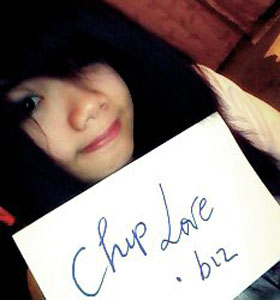 Chip Love
.biz